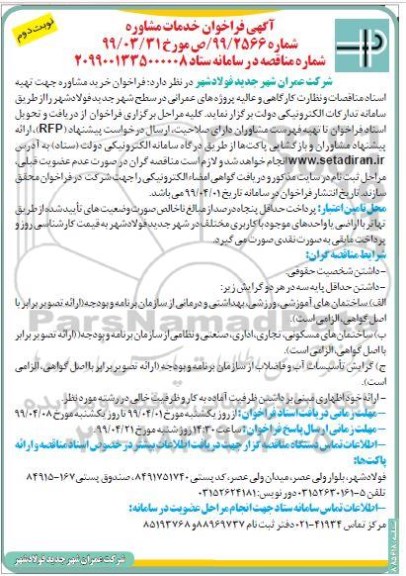 نوبت دوم
آگهی فراخوان خدمات مشاوره
شماره ۹۹/۲۵۶۶/ص مورخ ۹۹/۰۳/۳۱
شماره مناقصه در سامانه ستاد ۲۰۹۹۰۰۱۳۳۵۰۰۰۰۰۸
شرکت عمران شهر جدید فولادشهر در نظر دارد؛ فراخوان خرید مشاوره جهت تهیه
اسناد مناقصات و نظارت کارگاهی و عالیه پروژه های عمرانی در سطح شهر جدید فولادشهر را از طریق
سامانه تدارکات الکترونیکی دولت برگزار نماید. کلیه مراحل برگزاری فراخوان از دریافت و تحویل
اسناد فراخوان تا تهیه فهرست مشاوران دارای صلاحیت، ارسال درخواست پیشنهاد (RFP)، ارائه
پیشنهاد مشاوران و بازگشایی پاکت‌ها از طریق درگاه سامانه الکترونیکی دولت (ستاد) به آدرس
www.setadiran.ir انجام خواهد شد و لازم است مناقصه گران در صورت عدم عضویت قبلی،
مراحل ثبت نام در سایت مذکور و دریافت گواهی امضاء الکترونیکی را جهت شرکت در فراخوان محقق
سازند. تاریخ انتشار فراخوان در سامانه تاریخ ۹۹/۰۴/۰۱ می باشد.
محل تأمین اعتبار: پرداخت حداقل پنجاه درصد از مبالغ ناخالص صورت وضعیت های تأیید شده از طریق
تهاتر با اراضی یا واحدهای موجود با کاربری مختلف در شهر جدید فولادشهر به قیمت کارشناسی روز و
پرداخت مابقی به صورت نقدی صورت می گیرد.
شرایط مناقصه گران:
-داشتن شخصیت حقوقی.
-داشتن حداقل پایه سه در هر دو گرایش زیر:
الف) ساختمان های آموزشی، ورزشی، بهداشتی و درمانی از سازمان برنامه و بودجه (ارائه تصویر برابر با
اصل گواهی، الزامی است).
ب) ساختمان های مسکونی، تجاری، اداری، صنعتی و نظامی از سازمان برنامه و بودجه (ارائه تصویر برابر
با اصل گواهی، الزامی است).
ج) گرایش تأسیسات آب و فاضلاب از سازمان برنامه و بودجه (ارائه تصویر برابر با اصل گواهی، الزامی
است).
-ارائه خود اظهاری مبنی بر داشتن ظرفیت آماده به کار و ظرفیت خالی در رشته مورد نظر.
-مهلت زمانی دریافت اسناد فراخوان: از روز یکشنبه مورخ ۹۹/۰۴/۰۱ تا روز یکشنبه مورخ ۹۹/۰۴/۰۸
-مهلت زمانی ارسال پاسخ فراخوان: ساعت ۱۴:۳۰ روز شنبه مورخ ۹۹/۰۴/۲۱
-اطلاعات تماس دستگاه مناقصه گزار جهت دریافت اطلاعات بیشتر در خصوص اسناد مناقصه و ارائه
پاکت‌ها:
فولادشهر، بلوار ولی عصر، میدان ولی عصر، کد پستی ۸۴۹۱۷۵۱۷۴۰، صندوق پستی ۱۶۷-۸۴۹۱۵
تلفن ۵-۰۳۱۵۲۶۳۰۱۶۱ دورنویس: ۰۳۱۵۲۶۲۴۱۸۱
-اطلاعات تماس سامانه ستاد جهت انجام مراحل عضویت در سامانه:
مرکز تماس ۴۱۹۳۴-۰۲۱ دفتر ثبت نام ۸۸۹۶۹۷۳۷ و ۸۵۱۹۳۷۶۸
شرکت عمران شهر جدید فولادشهر